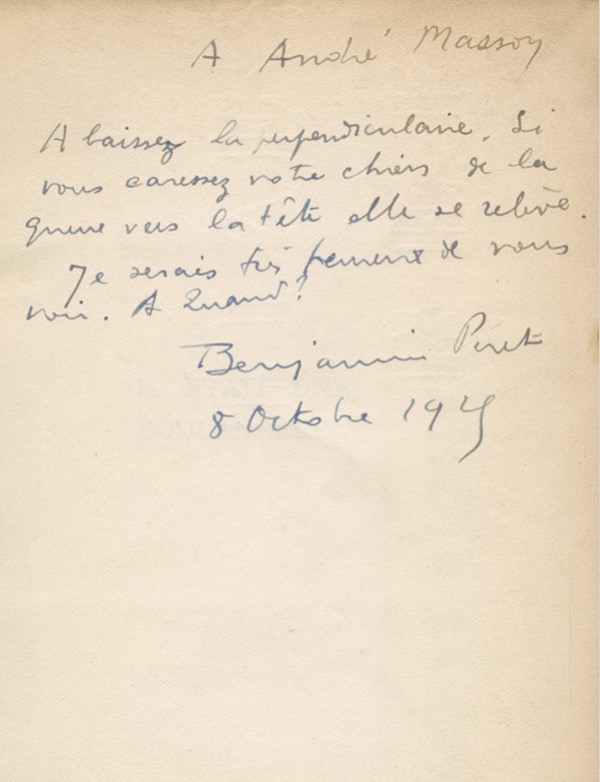 A André Masson
Abaissez la perpendiculaire. Si
vous caressez votre chien de la
queue vers la tête elle se relève.
Je serais très heureux de vous
voir. A Quand?
Benjamin Péret
8 Octobre 1925